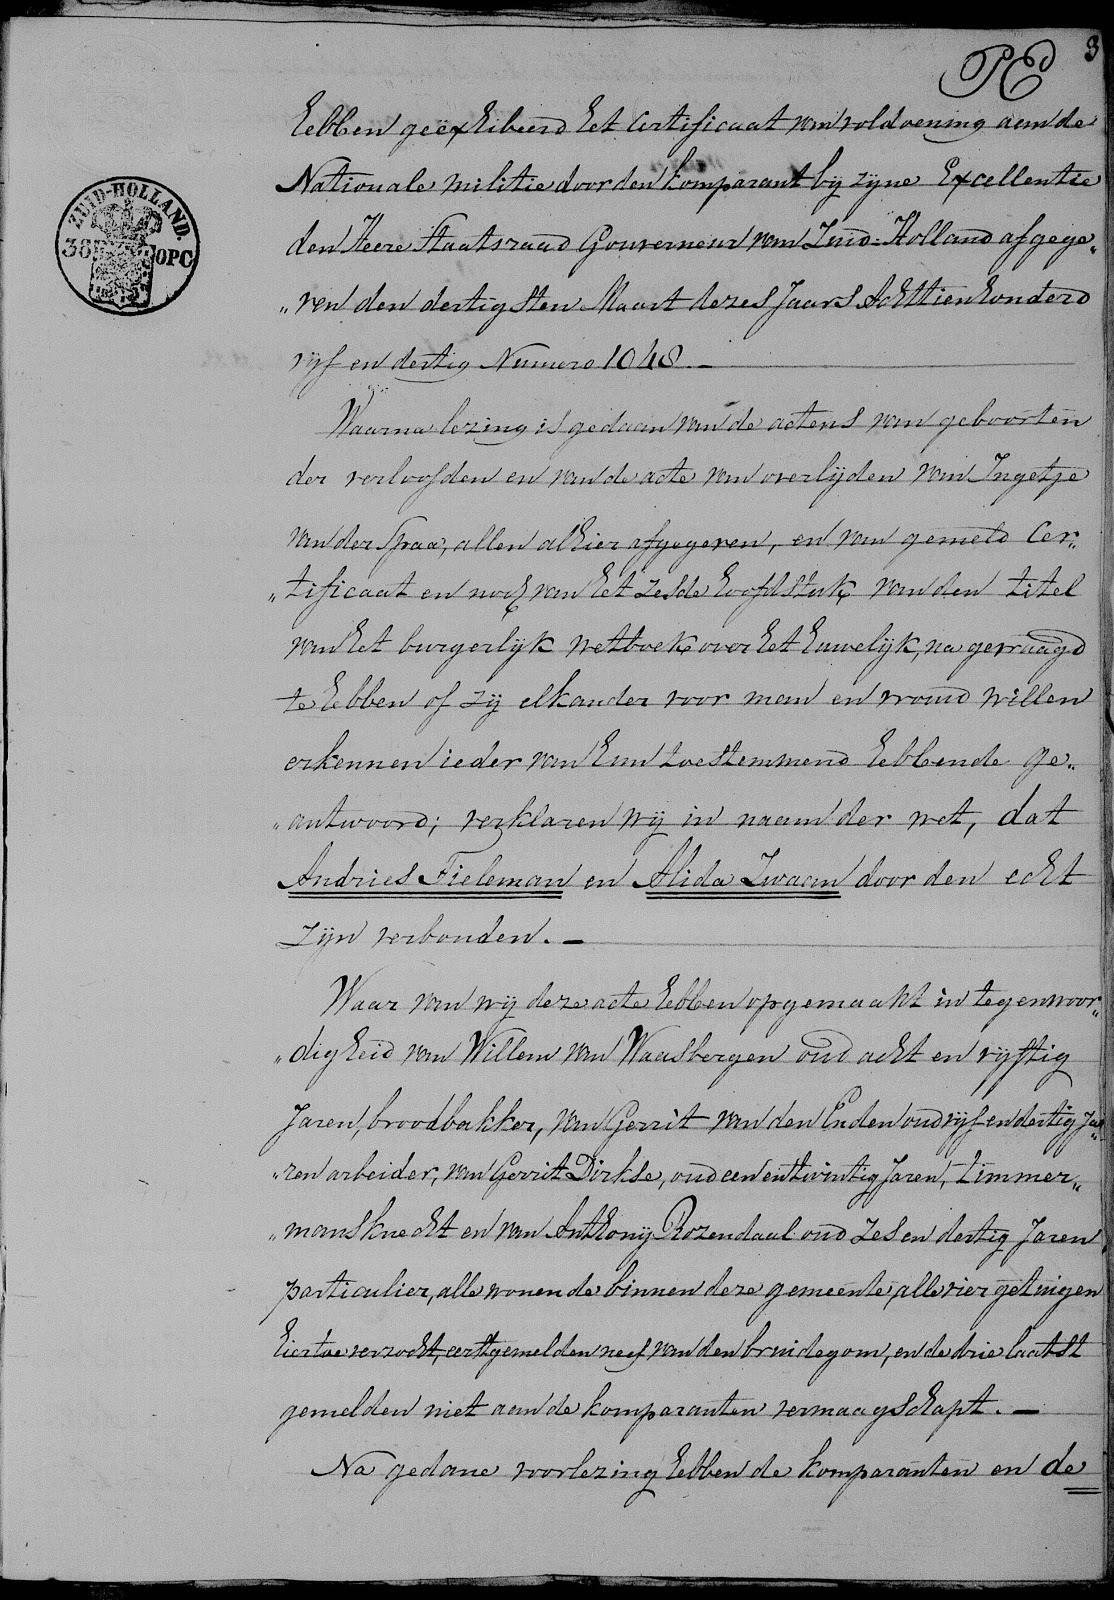 PEd
3
ZUID-HOLLAND.
38 OPC
hebben geëxhibeerd het certificaat van voldoening aan de
Nationale militie door den komparant bij zijne Excellentie
den Heere Staatsraad Gouverneur van Zuid-Holland afgege„
„ven den dertigsten Maart dezes Jaars Achttienhonderd
vijf en dertig Numero 1048.—
Waarna lezing is gedaan van de actens van geboorten
der verloofden en van de acte van overlijden van Ingetje
van der Spraa, allen alhier afgegeven, en van gemeld Cer„
„tificaat en nog van het zesde hoofdstuk van den titel
van het burgerlijk wetboek over het huwelijk, na gevraagd
te hebben of zij elkander voor man en vrouw willen
erkennen ieder van hun toestemmend hebbende ge„
„antwoord; verklaren wij in naam der wet, dat
Andries Tieleman en Alida Zwaan door den echt
zijn verbonden.—
Waar van wij deze acte hebben opgemaakt in tegenwoor„
„digheid van Willem van Waasbergen oud acht en vijftig
Jaren, broodbakker, van Gerrit van den Enden oud vijf en dertig Ja„
„ren arbeider, van Gerrit Dirkse, oud een en twintig Jaren, timmer„
„mansknecht en van Anthony Rozendaal oud zes en dertig Jaren
particulier, alle wonende binnen deze gemeente, alle vier getuigen
hiertoe verzocht, eerstgemelden neef van den bruidegom, en de drie laatst
gemelden niet aan de komparanten vermaagschapt.—
Na gedane voorlezing hebben de komparanten en de